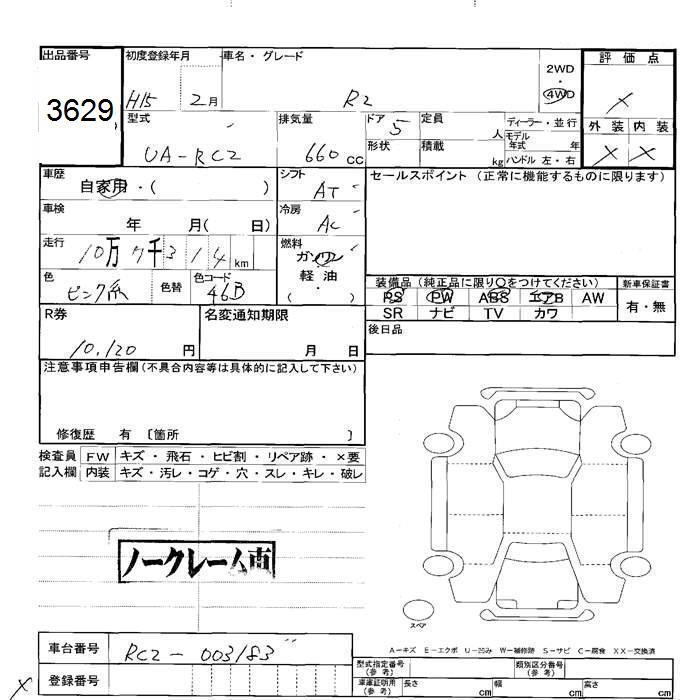 出品番号 初度登録年月 車名・グレード 評価点
3629 H15 2月 R2 2WD・4WD ×
型式 排気量 ドア 定員 ディーラー・並行 外装 内装
UA-RC2 660cc 5 人 モデル年式 年 × ×
形状 積載 kg ハンドル 左・右
車歴 シフト セールスポイント (正常に機能するものに限ります)
自家用・( ) AT
車検 年 月( 日) 冷房 AC
走行 10万7千314km 燃料 ガソリン
色 ピンク系 色替 色コード 46B 軽油 ( )
装備品 (純正品に限り○をつけてください) 新車保証書
PS PW ABS エアB AW 有・無
SR ナビ TV カワ
R券 名変通知期限 後日品
10,120 円 月 日
注意事項申告欄 (不具合内容等は具体的に記入して下さい)
修復歴 有 〔箇所 〕
検査員 FW キズ・飛石・ヒビ割・リペア跡・×要
記入欄 内装 キズ・汚レ・コゲ・穴・スレ・キレ・破レ
ノークレーム車
スペア
A-キズ E-エクボ U-凹み W-補修跡 S-サビ C-腐食 XX-交換済
車台番号 RC2-003183
型式指定番号(参考) 類別区分番号(参考)
× 登録番号
車庫証明用(参考) 長さ cm 幅 cm 高さ cm